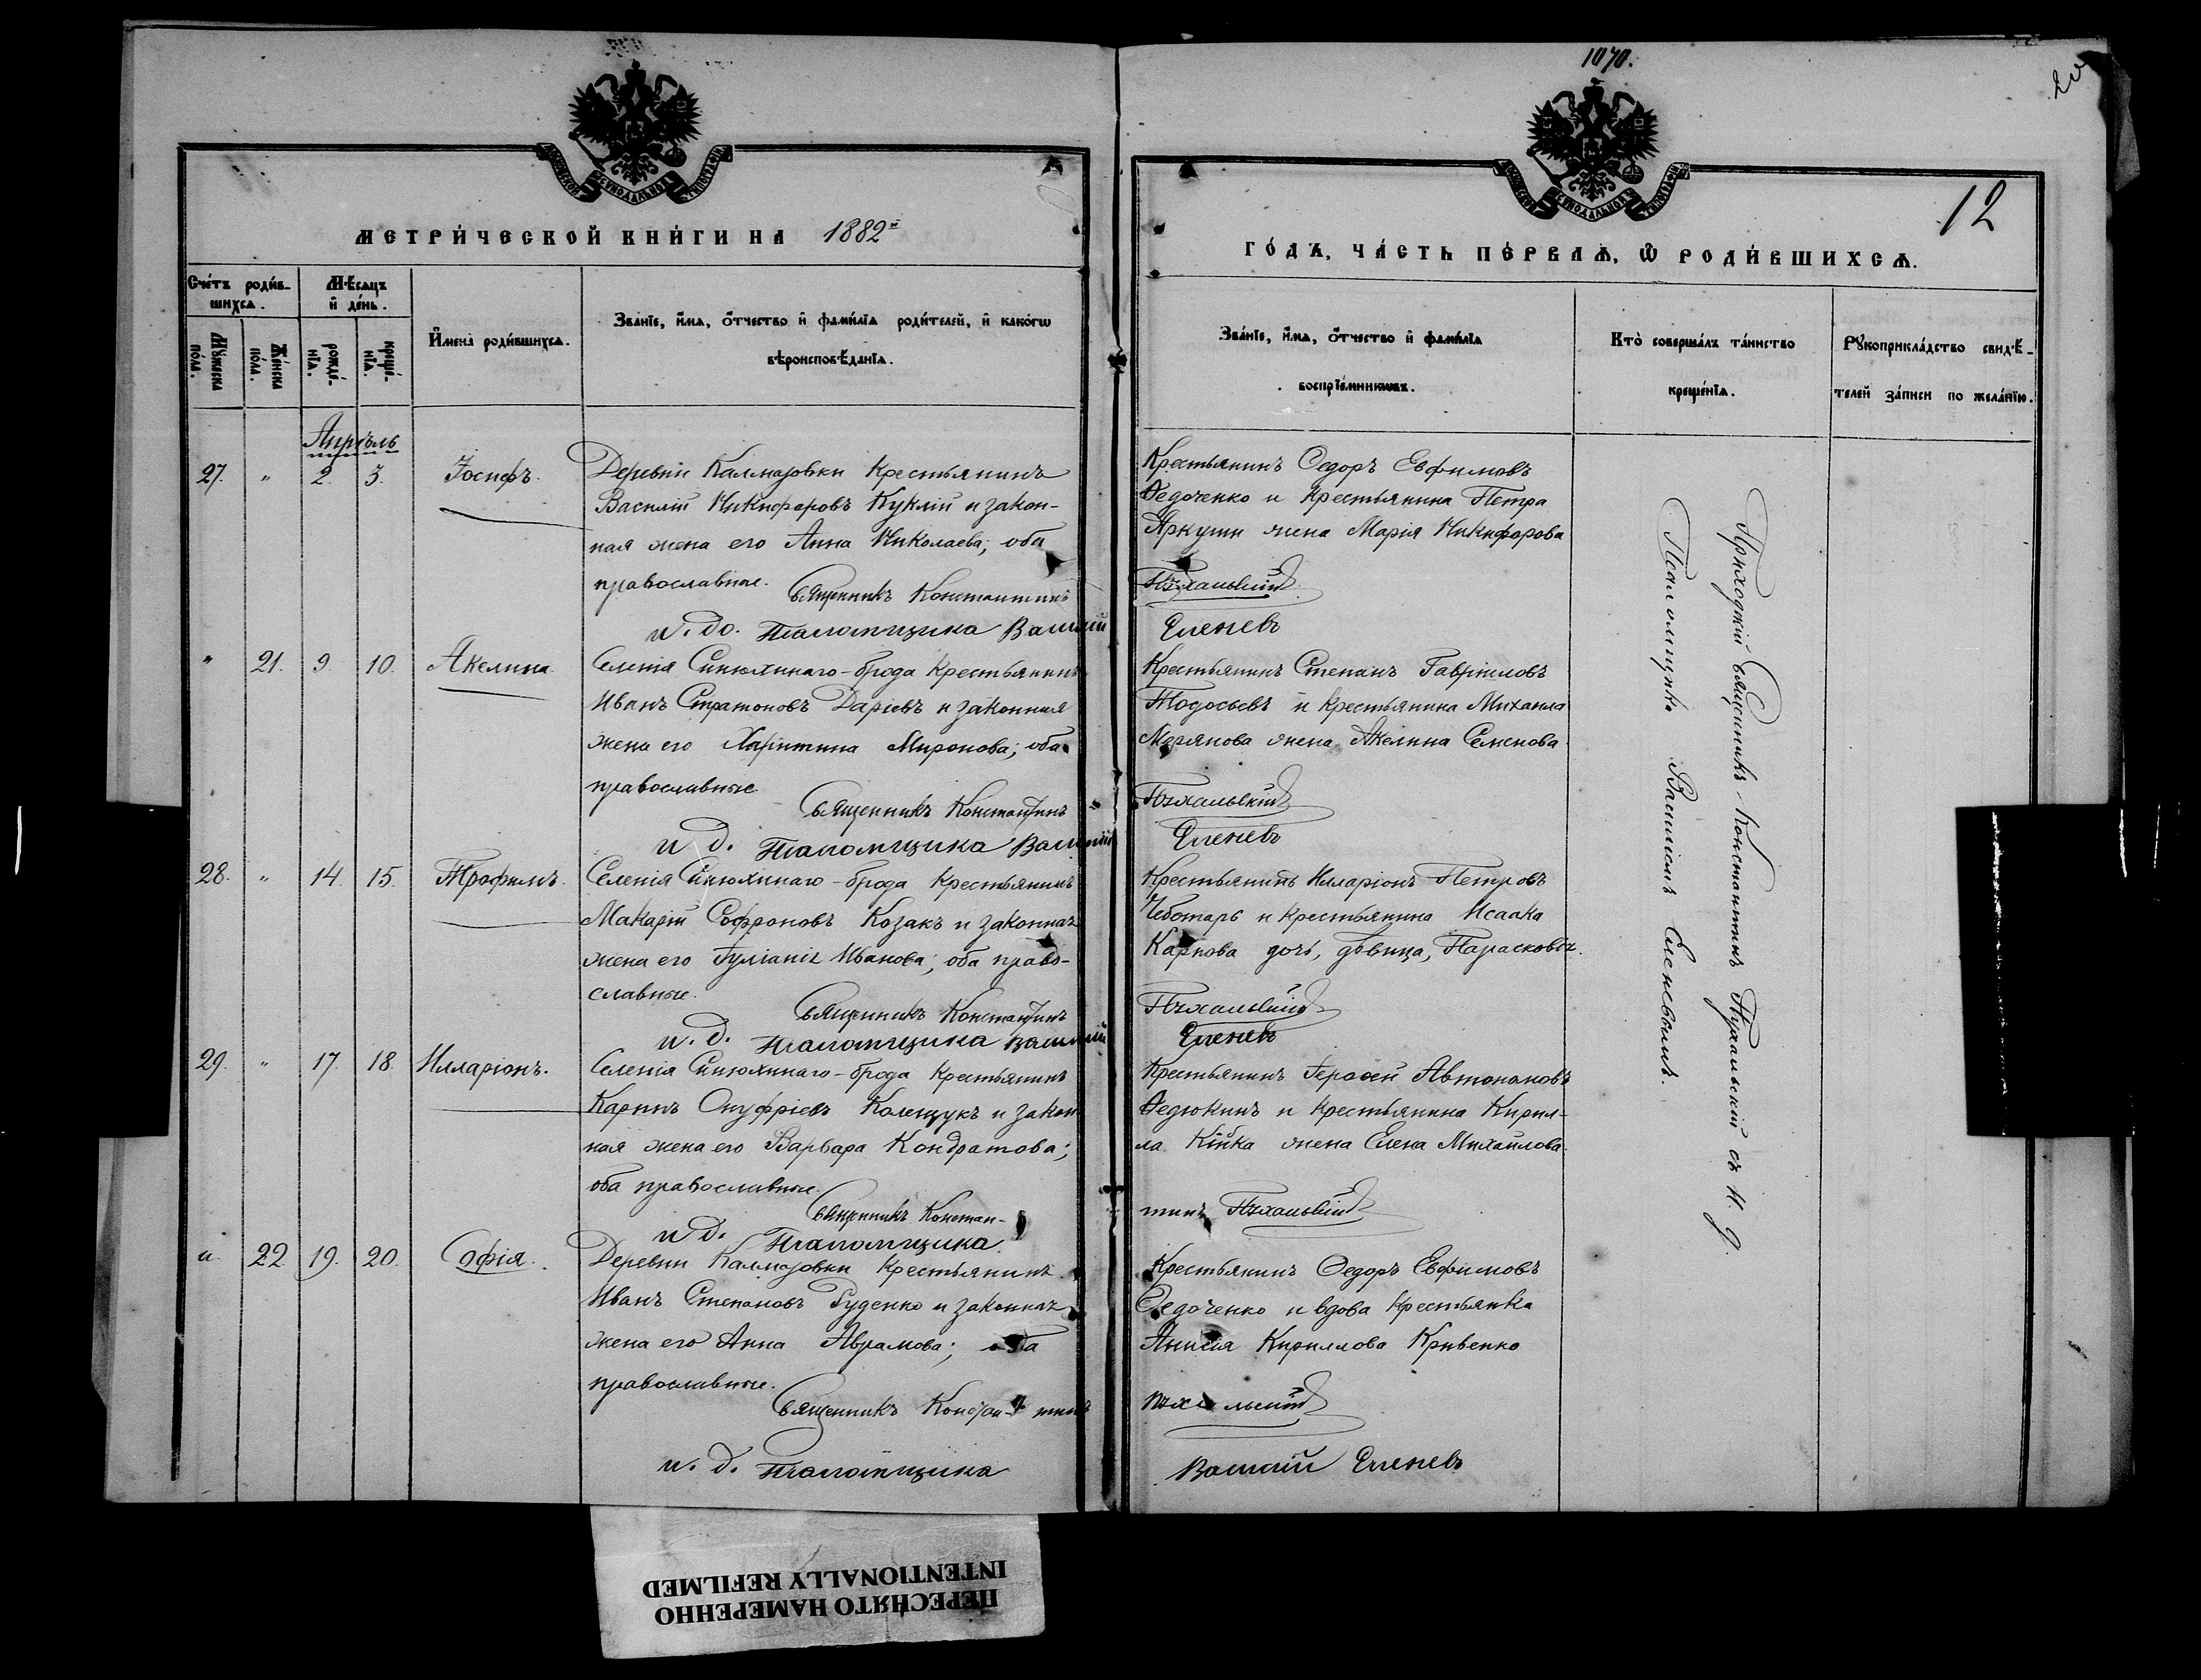 1070.
12
МЕТРИ́ЧЕСКОЙ КНИ́ГИ НА 1882й
ГО́ДЪ, ЧА́СТЬ ПЕ́РВАѦ, Ѡ РОДИ́ВШИХСѦ.
Сче́тъ роди́в-
шихсѧ.
Мѣ́сѧцъ
и де́нь.
Мꙋ́жеска
по́ла.
Же́нска
по́ла.
рожде́-
нїѧ.
креще́-
нїѧ.
И҆мена̀ роди́вшихсѧ.
Зва́нїе, и҆́мѧ, ѻ҆́тчество и҆ фами́лїѧ роди́телей, и҆ како́гѡ
вѣроисповѣ́данїѧ.
Зва́нїе, и҆́мѧ, ѻ҆́тчество и҆ фами́лїѧ
воспрїе́мникѡвъ.
Кто̀ соверша́лъ та́инство
креще́нїѧ.
Рꙋкоприкла́дство свидѣ́-
телей за́писи по жела́нїю.
Апрѣль
27. " 2. 3. Іосифъ.
Деревни Калмазовки крестьянинъ
Василій Никифоровъ Куклій и закон-
ная жена его Анна Николаева; оба
православные.
Священникъ Константинъ
и. до. Псаломщика Василій
Крестьянинъ Ѳедоръ Евфимовъ
Ѳедоченко и крестьянина Петра
жена Марія Никифорова
Пухальскій
Еленевъ
" 21. 9. 10. Акелина
Селенія Синюхинаго-брода крестьянинъ
Иванъ Стратоновъ Даріевъ и законная
жена его Харитина Миронова; оба
православные
Священникъ Константинъ
и д. Псаломщика Василій
Крестьянинъ Степанъ Гавріиловъ
Тодосьевъ и крестьянина Михаила
жена Акелина Семенова
Пухальскій
Еленевъ
28. " 14. 15. Трофимъ.
Селенія Синюхинаго-брода крестьянинъ
Макарій Софроновъ Козакъ и законная
жена его Іуліанія Иванова; оба право-
славные.
Священникъ Константинъ
и. д. Псаломщика Василій
Крестьянинъ Илларіонъ Петровъ
Чеботарь и крестьянина Исаака
Карпова дочь, дѣвица, Парасковія.
Пухальскій
Еленевъ
29. " 17. 18. Илларіонъ.
Селенія Синюхинаго-брода крестьянинъ
Карпъ Онуфріевъ Колещукъ и закон
ная жена его Варвара Кондратова;
оба православные.
Священникъ Констан-
и д. Псаломщика.
Крестьянинъ Герасій Автономовъ
Ѳедюкинъ и крестьянина Кирил-
ла жена Елена Михайлова.
тинъ Пухальскій
" 22 19. 20. Софія.
Деревни Калмазовки крестьянинъ
Иванъ Степановъ Руденко и законная
жена его Анна Аврамова; оба
православные.
Священникъ Константинъ
и. д. Псаломщика
Крестьянинъ Ѳедоръ Евфимовъ
Ѳедоченко и вдова крестьянка
Анисія Кириллова Кривенко
Пухальскій
Василій Еленевъ
Приходскій священникъ Константинъ Пухальскій съ и. д.
Псаломщика Василіемъ Еленевымъ.
ПЕРЕСНЯТО НАМЕРЕННО
INTENTIONALLY REFILMED